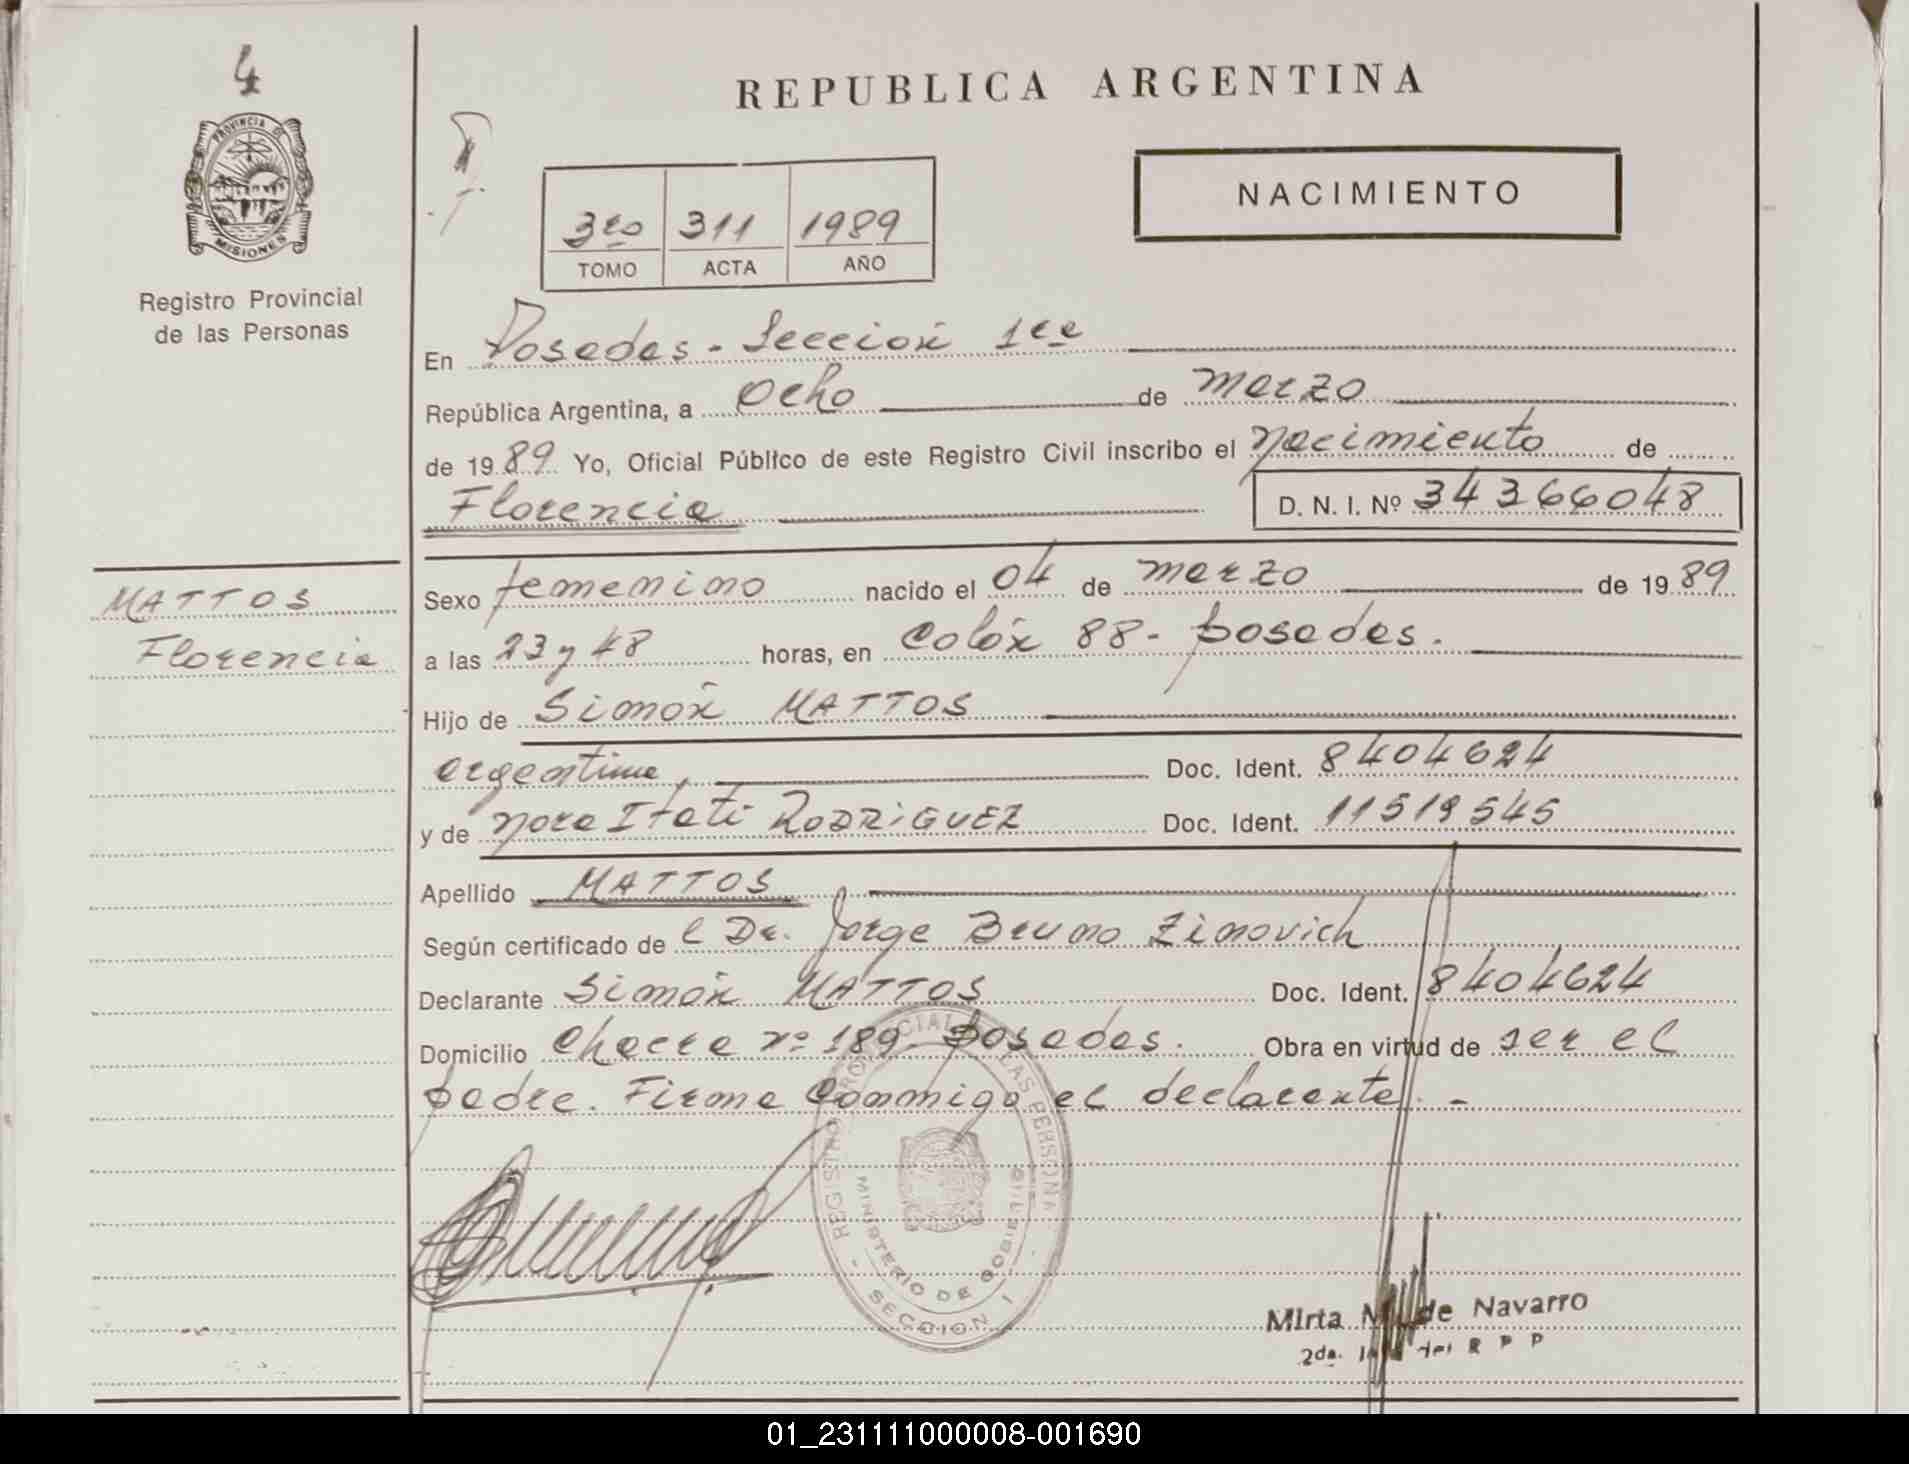 4
REPUBLICA ARGENTINA
PROVINCIA DE
MISIONES
NACIMIENTO
3ro 311 1989
TOMO ACTA AÑO
Registro Provincial
de las Personas
En Posadas - Sección 1ra
República Argentina, a Ocho de marzo
de 1989 Yo, Oficial Público de este Registro Civil inscribo el nacimiento de
Florencia D. N. I. Nº 34366048
MATTOS
Florencia
Sexo femenino nacido el 04 de marzo de 1989
a las 23 y 48 horas, en Colón 88 - Posadas.
Hijo de Simón MATTOS
argentino, Doc. Ident. 8404624
y de Nora Itatí RODRIGUEZ Doc. Ident. 11519545
Apellido MATTOS
Según certificado de l Dr. Jorge Bruno Zinovich
Declarante Simón MATTOS Doc. Ident. 8404624
Domicilio Chacra nº 189 - Posadas. Obra en virtud de ser el
padre. Firma conmigo el declarante. -
REGISTRO PROVINCIAL DE LAS PERSONAS
MINISTERIO DE GOBIERNO
- SECCION 1 -
Mirta de Navarro
2da. del R P P
01_231111000008-001690